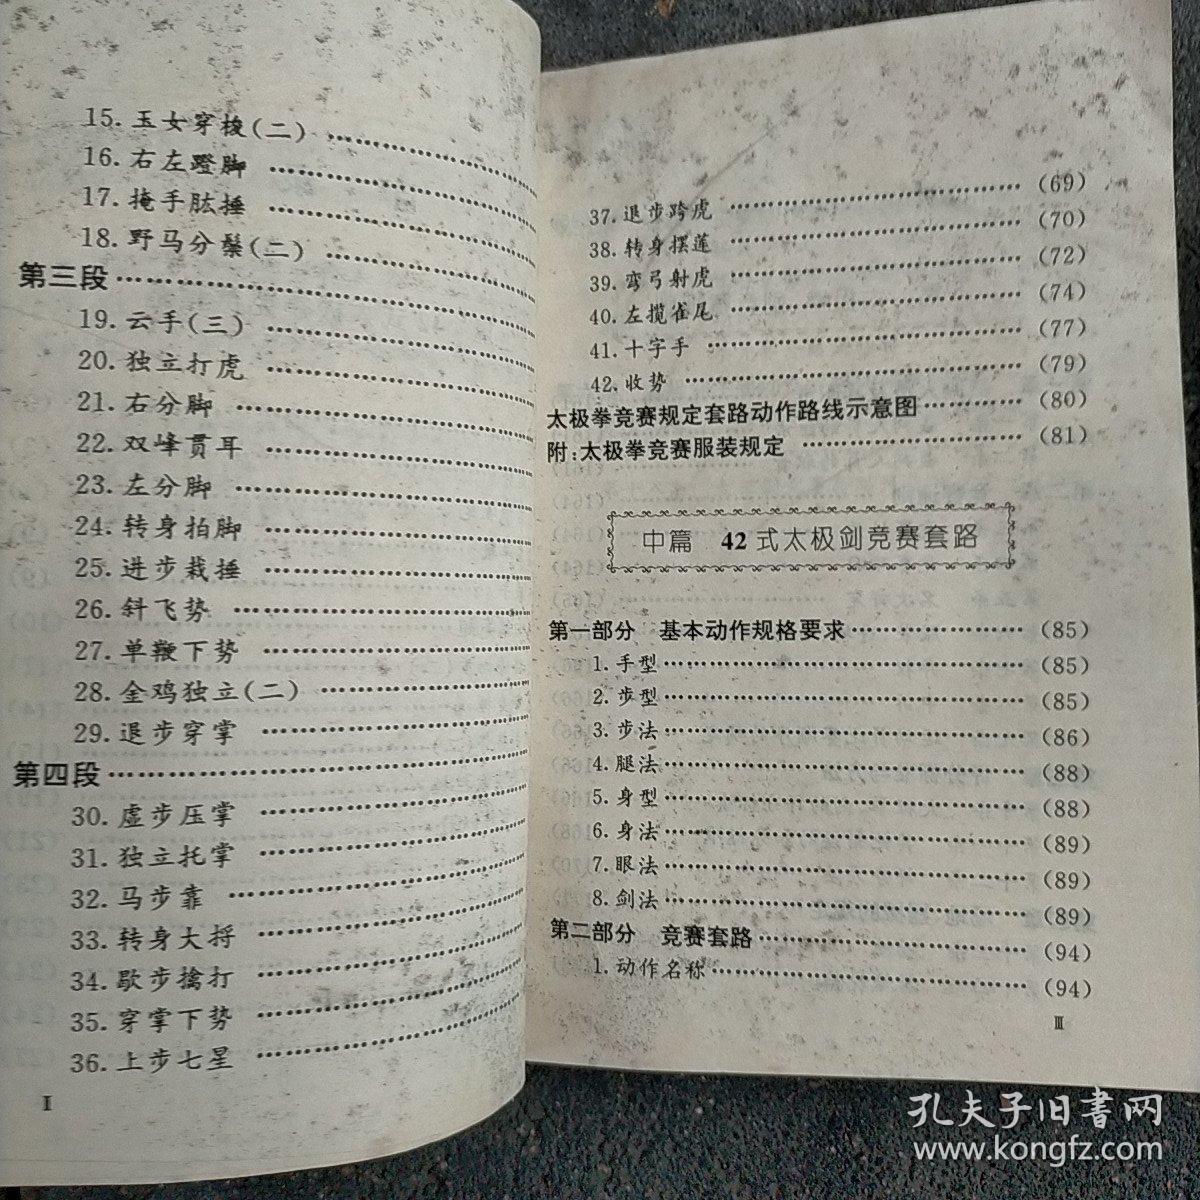 15.玉女穿梭(二)……………………
16.右左蹬脚 ……………………
17.掩手肱捶 ……………………
18.野马分鬃(二)……………………
第三段……………………
19.云手(三)……………………
20.独立打虎 ……………………
21.右分脚 ……………………
22.双峰贯耳 ……………………
23.左分脚 ……………………
24.转身拍脚 ……………………
25.进步栽捶 ……………………
26.斜飞势 ……………………
27.单鞭下势 ……………………
28.金鸡独立(二)……………………
29.退步穿掌 ……………………
第四段……………………
30.虚步压掌 ……………………
31.独立托掌 ……………………
32.马步靠 ……………………
33.转身大捋 ……………………
34.歇步擒打 ……………………
35.穿掌下势 ……………………
36.上步七星 ……………………
Ⅱ
37.退步跨虎 …………………… (69)
38.转身摆莲 …………………… (70)
39.弯弓射虎 …………………… (72)
40.左揽雀尾 …………………… (74)
41.十字手 …………………… (77)
42.收势 …………………… (79)
太极拳竞赛规定套路动作路线示意图………… (80)
附:太极拳竞赛服装规定 ………………… (81)
中篇 42式太极剑竞赛套路
第一部分 基本动作规格要求………………… (85)
1.手型…………………… (85)
2.步型…………………… (85)
3.步法…………………… (86)
4.腿法…………………… (88)
5.身型…………………… (88)
6.身法…………………… (89)
7.眼法…………………… (89)
8.剑法…………………… (89)
第二部分 竞赛套路…………………… (94)
1.动作名称…………………… (94)
Ⅲ
孔夫子旧书网
www.kongfz.com